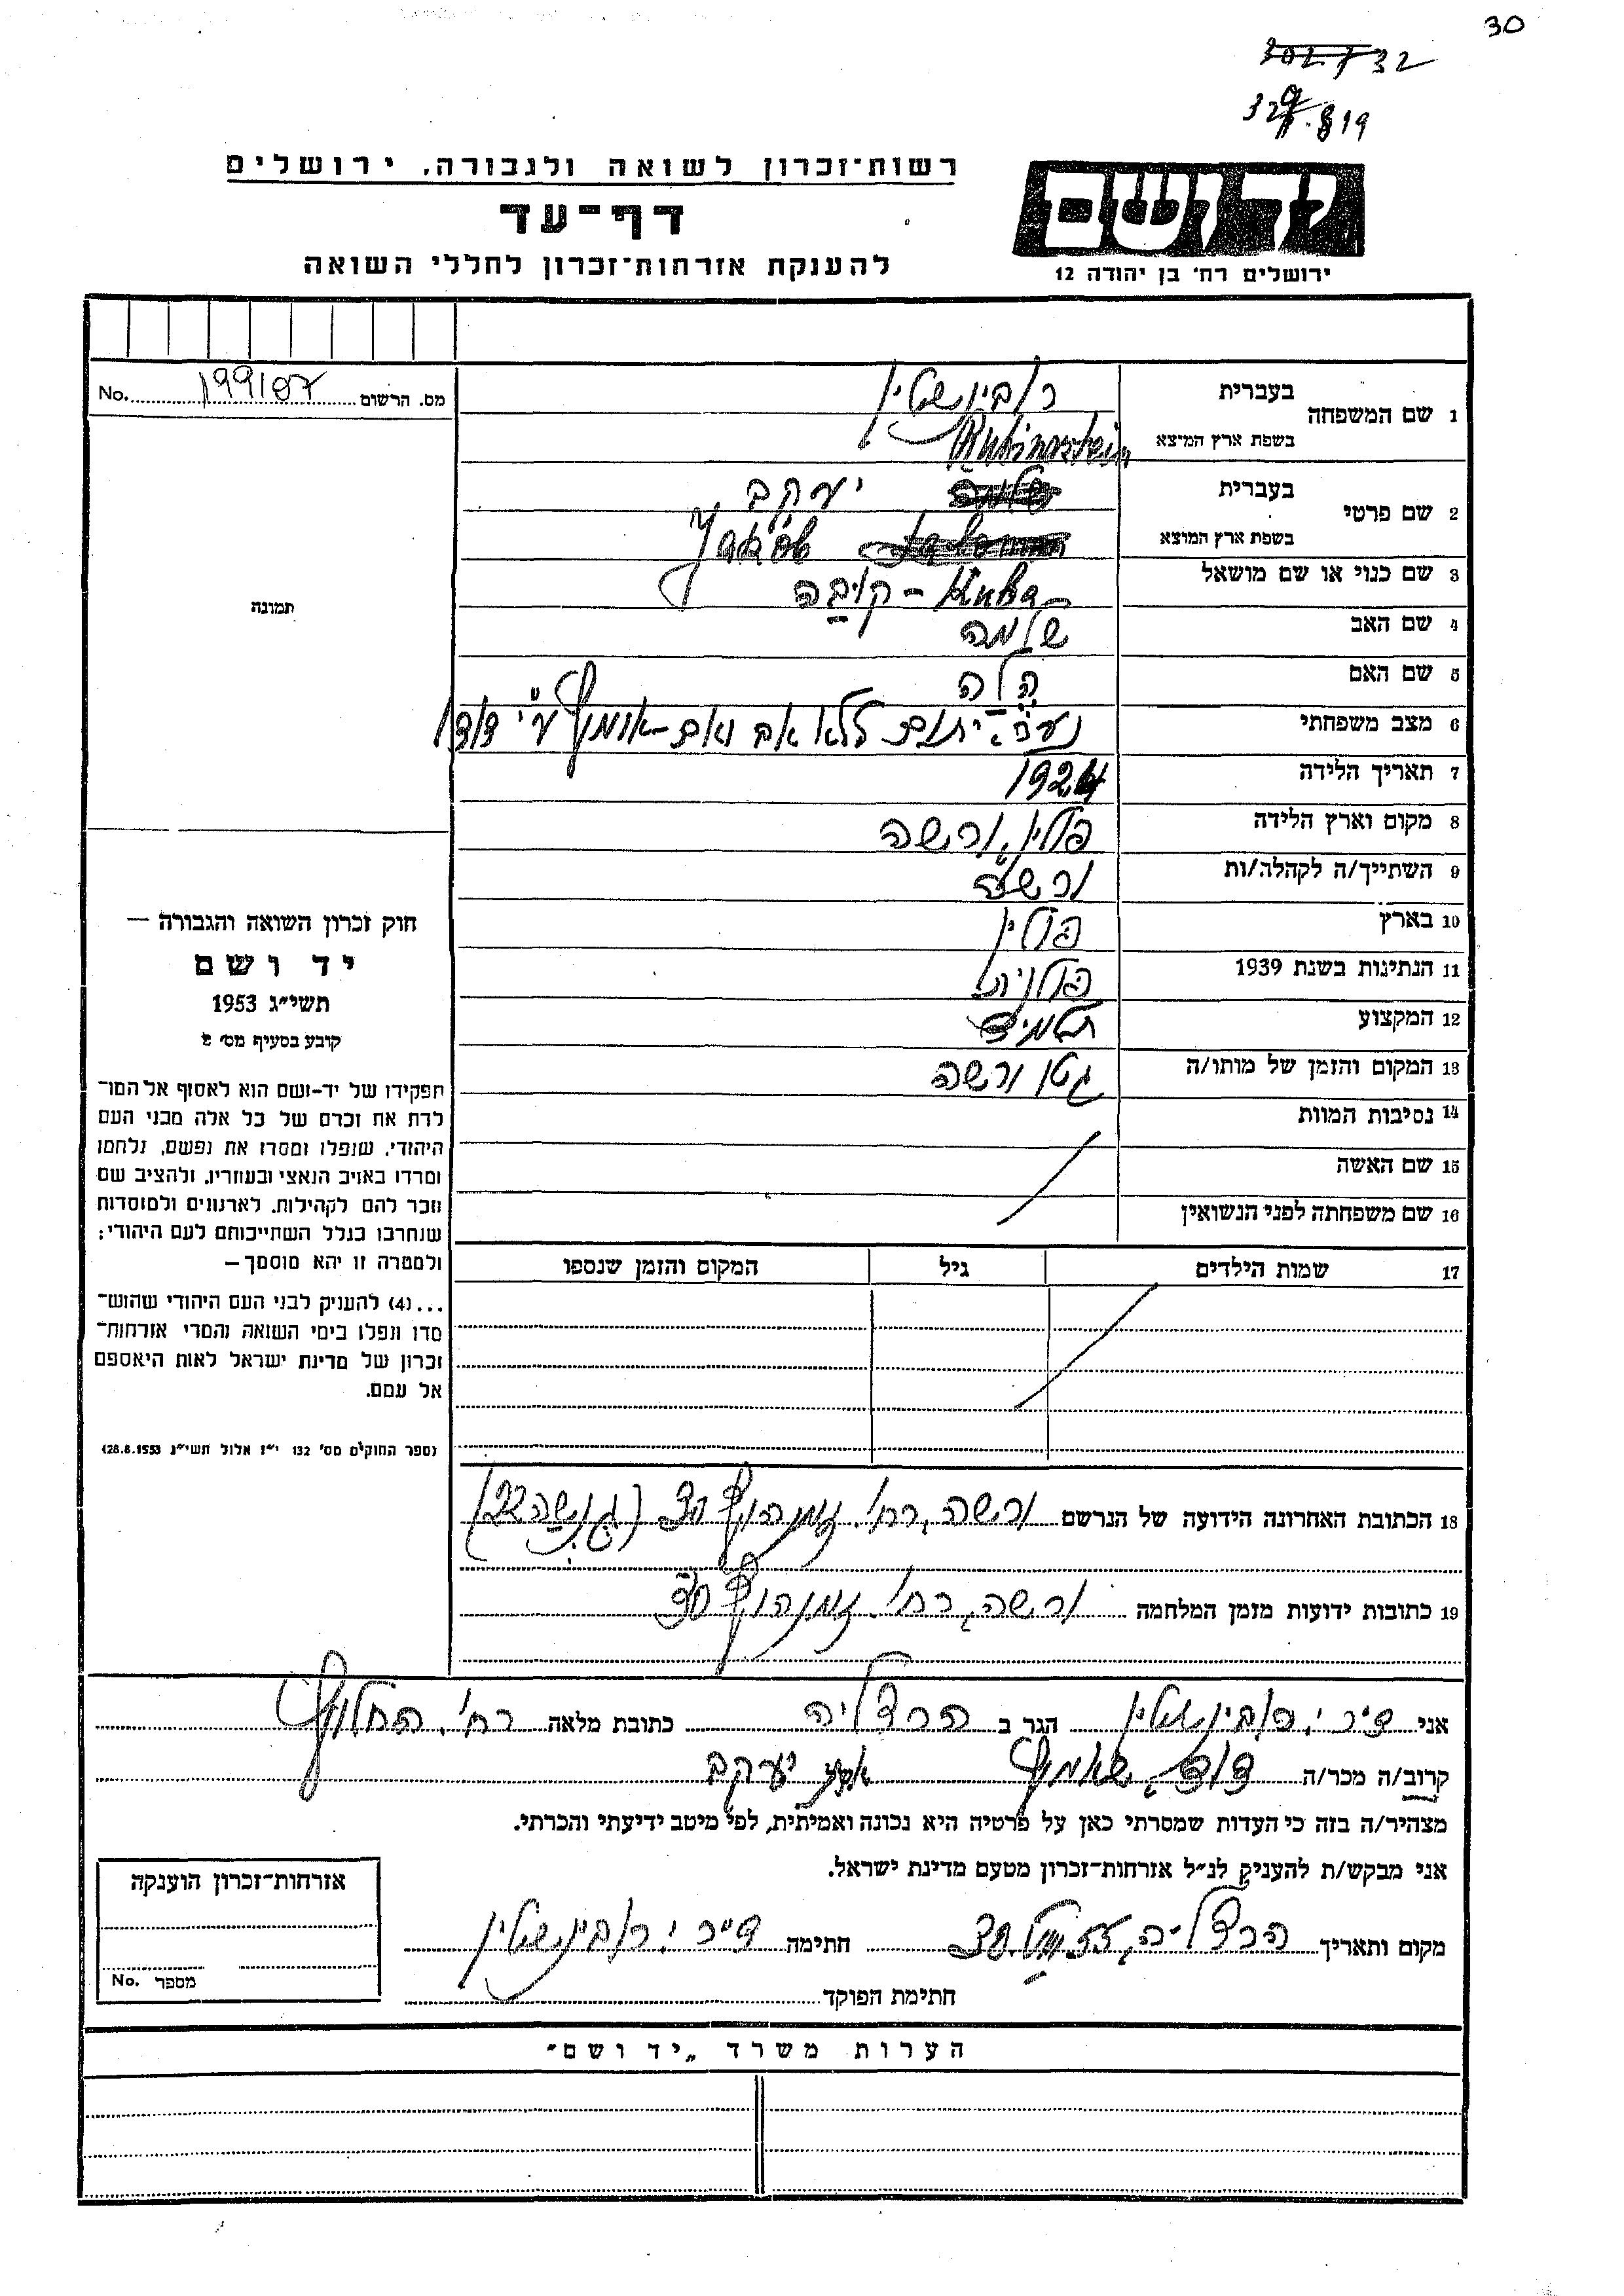 30
302.732
329.819
רשות־זכרון לשואה ולגבורה, ירושלים
דף־עד
להענקת אזרחות־זכרון לחללי השואה
יד ושם
ירושלים רח' בן יהודה 12
מס. הרשום 199107 No.
1 שם המשפחה בעברית רובינשטיין
בשפת ארץ המוצא Rubinsztein
2 שם פרטי בעברית יעקב
בשפת ארץ המוצא Jakób
3 שם כנוי או שם מושאל Kuba - קובה
4 שם האב שלמה
5 שם האם הלה
6 מצב משפחתי נער, יתום ללא אב ואם - אומץ ע"י דודו
7 תאריך הלידה 1924
8 מקום וארץ הלידה פולין, ורשה
9 השתייך/ה לקהלה/ות ורשה
10 בארץ פולין
11 הנתינות בשנת 1939 פולנית
12 המקצוע תלמיד
13 המקום והזמן של מותו/ה גטו ורשה
14 נסיבות המוות
15 שם האשה
16 שם משפחתה לפני הנשואין
17 שמות הילדים גיל המקום והזמן שנספו
תמונה
חוק זכרון השואה והגבורה —
יד ושם
תשי"ג 1953
קובע בסעיף מס' 2
תפקידו של יד-ושם הוא לאסוף אל המו־
לדת את זכרם של כל אלה מבני העם
היהודי, שנפלו ומסרו את נפשם, נלחמו
ומרדו באויב הנאצי ובעוזריו, ולהציב שם
וזכר להם לקהילות, לארגונים ולמוסדות
שנחרבו בגלל השתייכותם לעם היהודי;
ולמטרה זו יהא מוסמך —
...(4) להעניק לבני העם היהודי שהוש־
מדו ונפלו בימי השואה והמרי אזרחות־
זכרון של מדינת ישראל לאות היאספם
אל עמם.
(ספר החוקים מס' 132 י"ז אלול תשי"ג 28.8.1953)
18 הכתובת האחרונה הידועה של הנרשם ורשה, רח' זמנהוף 30 (גנשה 22)
19 כתובות ידועות מזמן המלחמה ורשה, רח' זמנהוף 30
אני רובינשטיין הגר ב הרצליה כתובת מלאה רח' החלוץ
קרוב/ה מכר/ה דוד, שאמץ את יעקב
מצהיר/ה בזה כי העדות שמסרתי כאן על פרטיה היא נכונה ואמיתית, לפי מיטב ידיעתי והכרתי.
אני מבקש/ת להעניק לנ"ל אזרחות־זכרון מטעם מדינת ישראל.
מקום ותאריך הרצליה, חתימה רובינשטיין
חתימת הפוקד
אזרחות־זכרון הוענקה
מספר No.
הערות משרד „יד ושם"